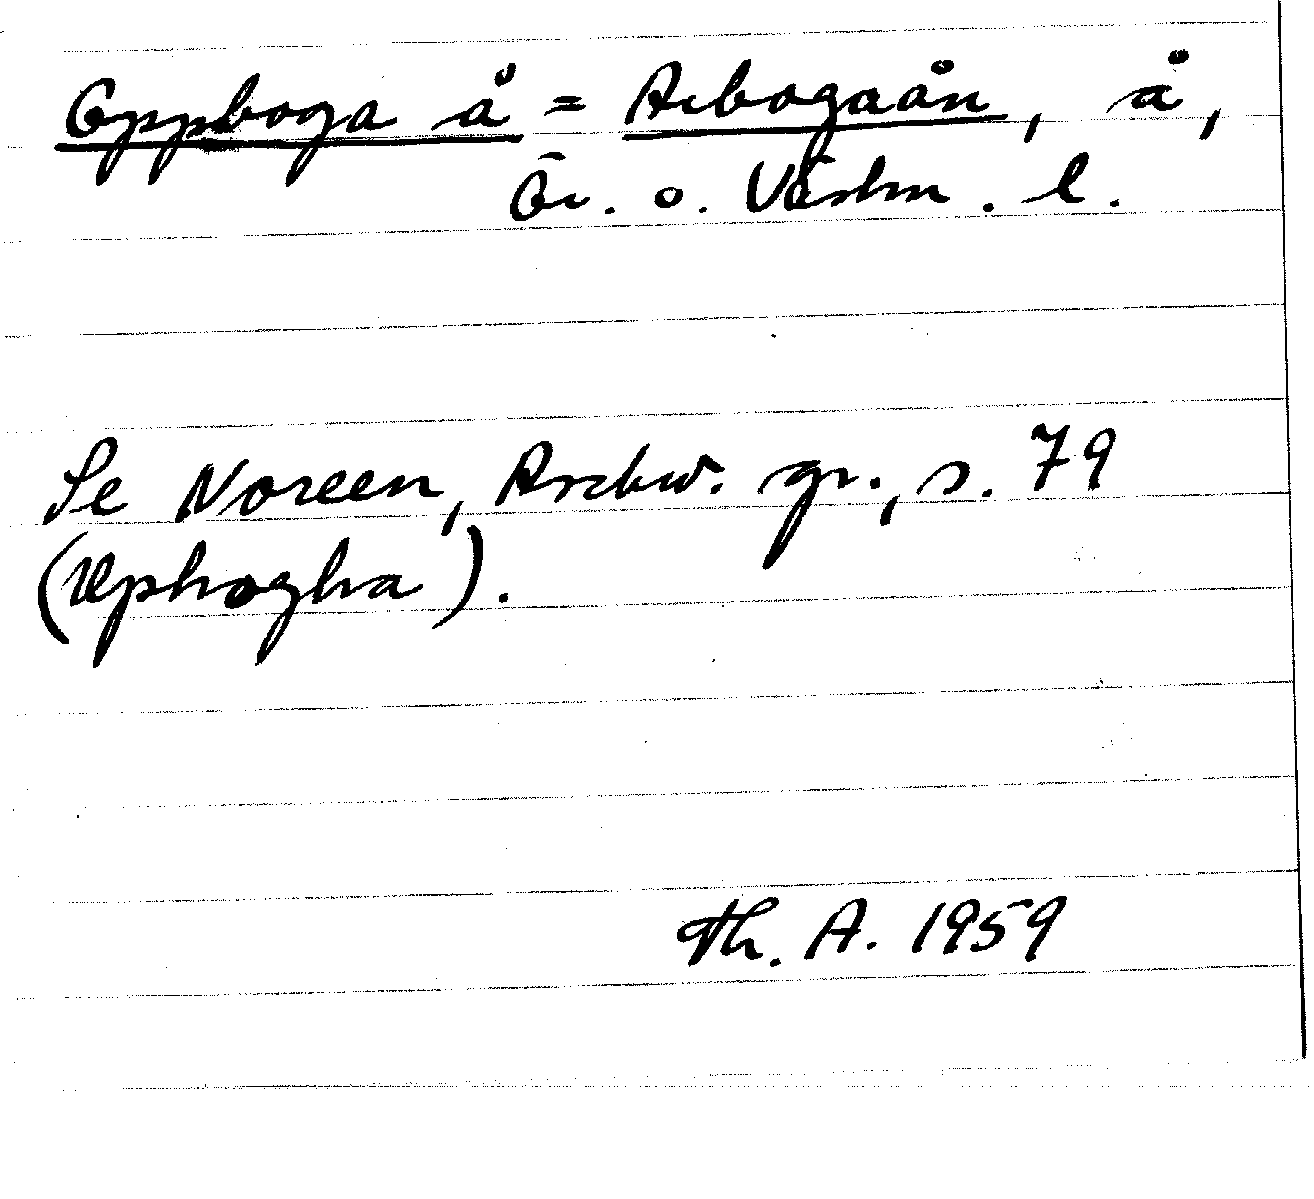 Oppboga å = Arbogaån, å,
Ör. o. Västm. l.
Se Noreen, Aschw. gr., s. 79
(Uphogha).
Th. A. 1959